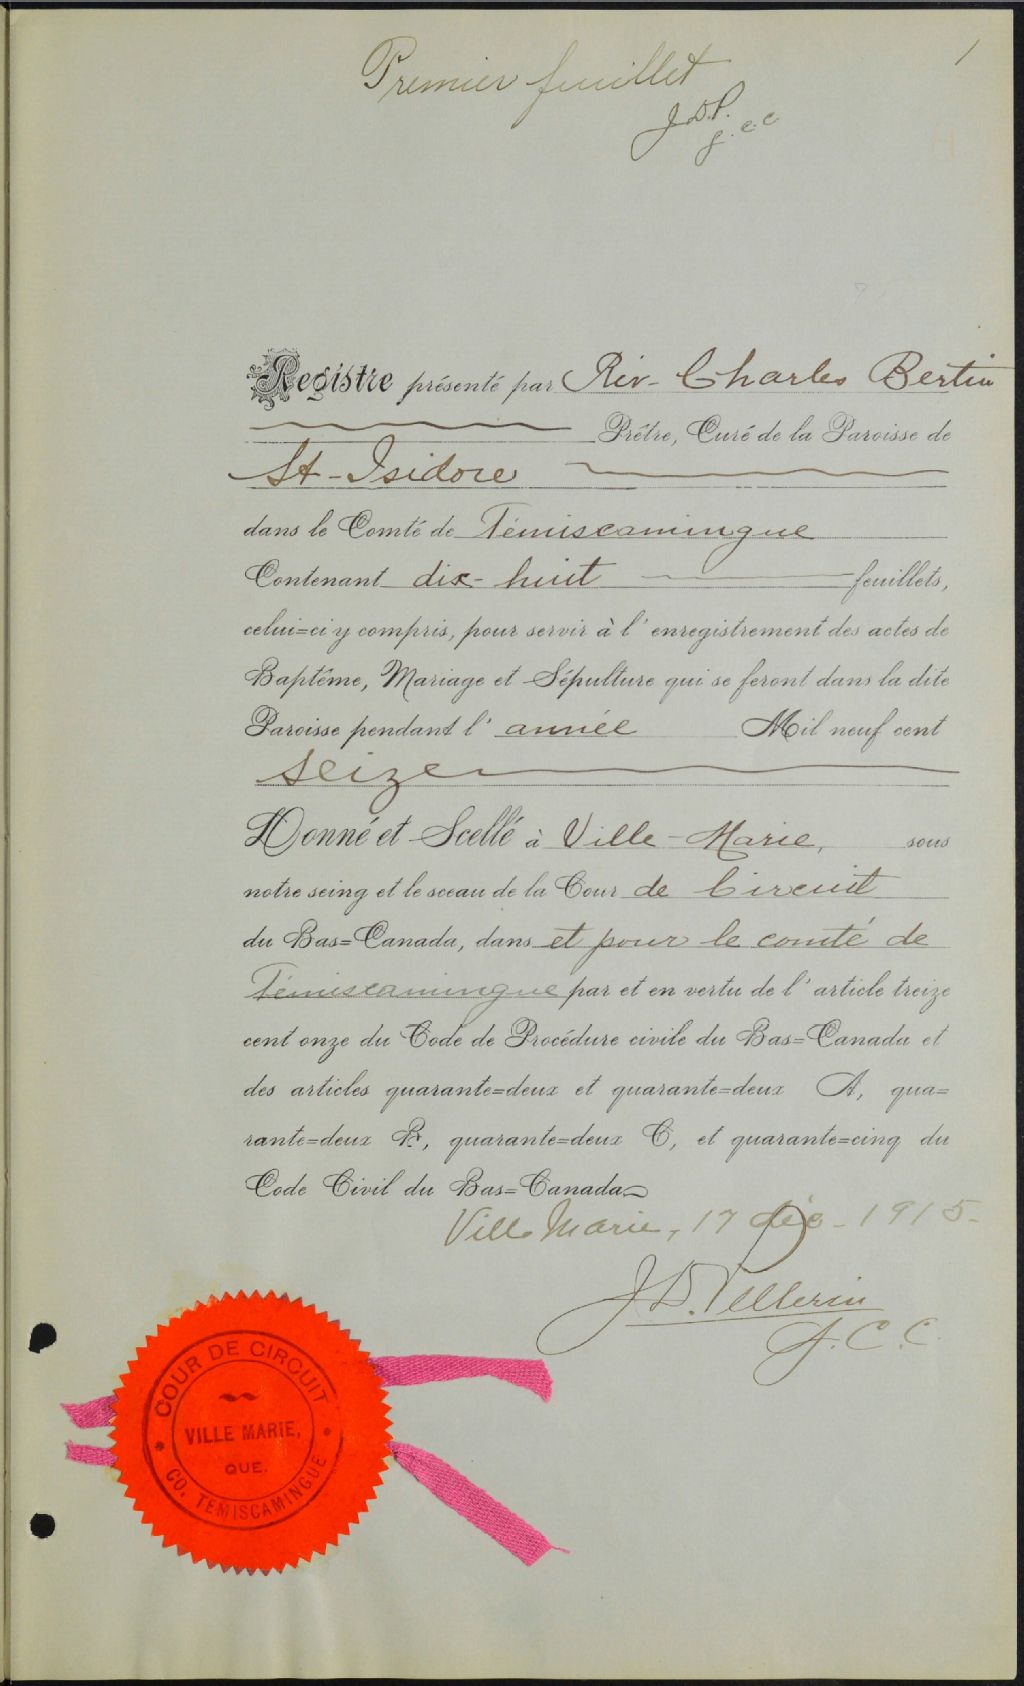 1
Premier feuillet
J.D.P.
j.c.c
Registre présenté par Rév. Charles Bertin
Prêtre, Curé de la Paroisse de
St-Isidore
dans le Comté de Témiscamingue
Contenant dix-huit feuillets,
celui=ci y compris, pour servir à l'enregistrement des actes de
Baptême, Mariage et Sépulture qui se feront dans la dite
Paroisse pendant l'année Mil neuf cent
seize
Donné et Scellé à Ville-Marie, sous
notre seing et le sceau de la Cour de Circuit
du Bas=Canada, dans et pour le comté de
Témiscamingue par et en vertu de l'article treize
cent onze du Code de Procédure civile du Bas=Canada et
des articles quarante=deux et quarante=deux A, qua=
rante=deux B, quarante=deux C, et quarante=cinq du
Code Civil du Bas=Canada
Ville Marie, 17 déc - 1915-
J.D. Pellerin
J.C.C.
COUR DE CIRCUIT
VILLE MARIE,
QUE.
CO. TEMISCAMINGUE